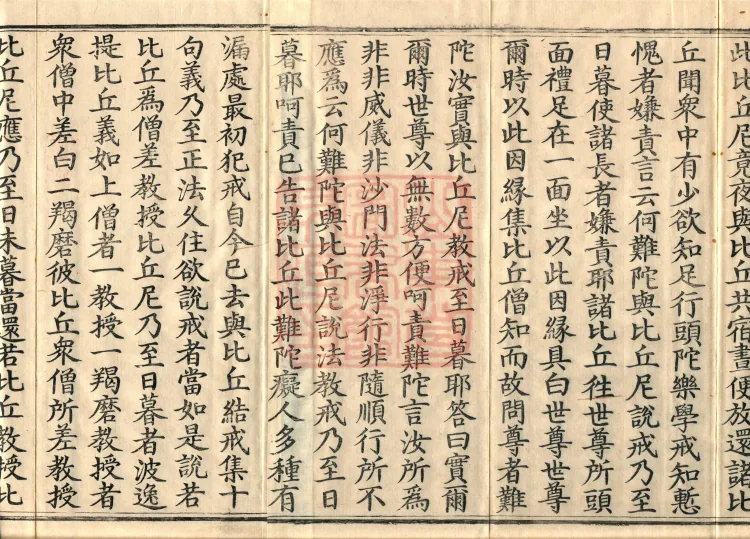 此比丘尼竟夜與比丘共宿晝便放還諸比
丘聞衆中有少欲知足行頭陀樂學戒知慙
愧者嫌責言云何難陀與比丘尼說戒乃至
日暮使諸長者嫌責耶諸比丘往世尊所頭
面禮足在一面坐以此因緣具白世尊世尊
爾時以此因緣集比丘僧知而故問尊者難
陀汝實與比丘尼教戒至日暮耶答曰實爾
爾時世尊以無數方便呵責難陀言汝所為
非非威儀非沙門法非淨行非隨順行所不
應為云何難陀與比丘尼說法教戒乃至日
暮耶呵責已告諸比丘此難陀癡人多種有
漏處最初犯戒自今已去與比丘結戒集十
句義乃至正法久住欲說戒者當如是說若
比丘為僧差教授比丘尼乃至日暮者波逸
提比丘義如上僧者一教授一羯磨教授者
衆僧中差白二羯磨彼比丘衆僧所差教授
比丘尼應乃至日未暮當還若比丘教授比